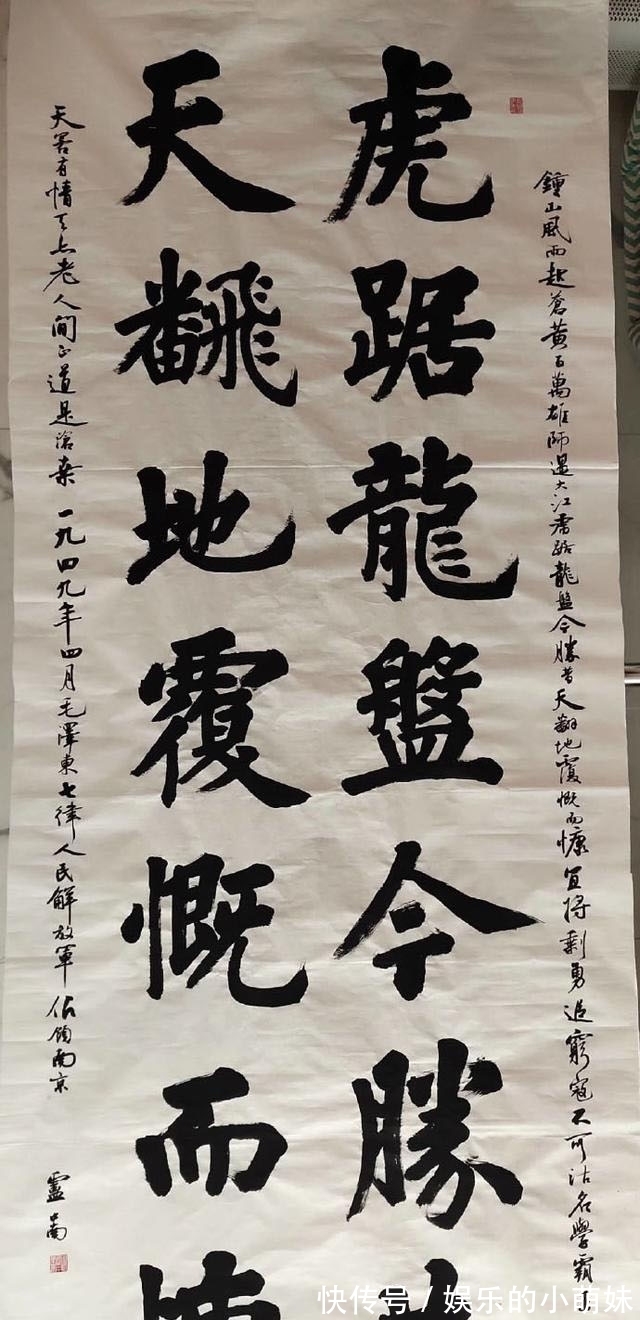 鍾山風雨起蒼黃百萬雄師過大江虎踞龍盤今勝昔天翻地覆慨而慷宜將剩勇追窮寇不可沽名學霸王
虎踞龍盤今勝
天飜地覆慨而慷
天若有情天亦老人間正道是滄桑 一九四九年四月毛澤東七律人民解放軍佔領南京
盧中南
快传号/娱乐的小萌妹